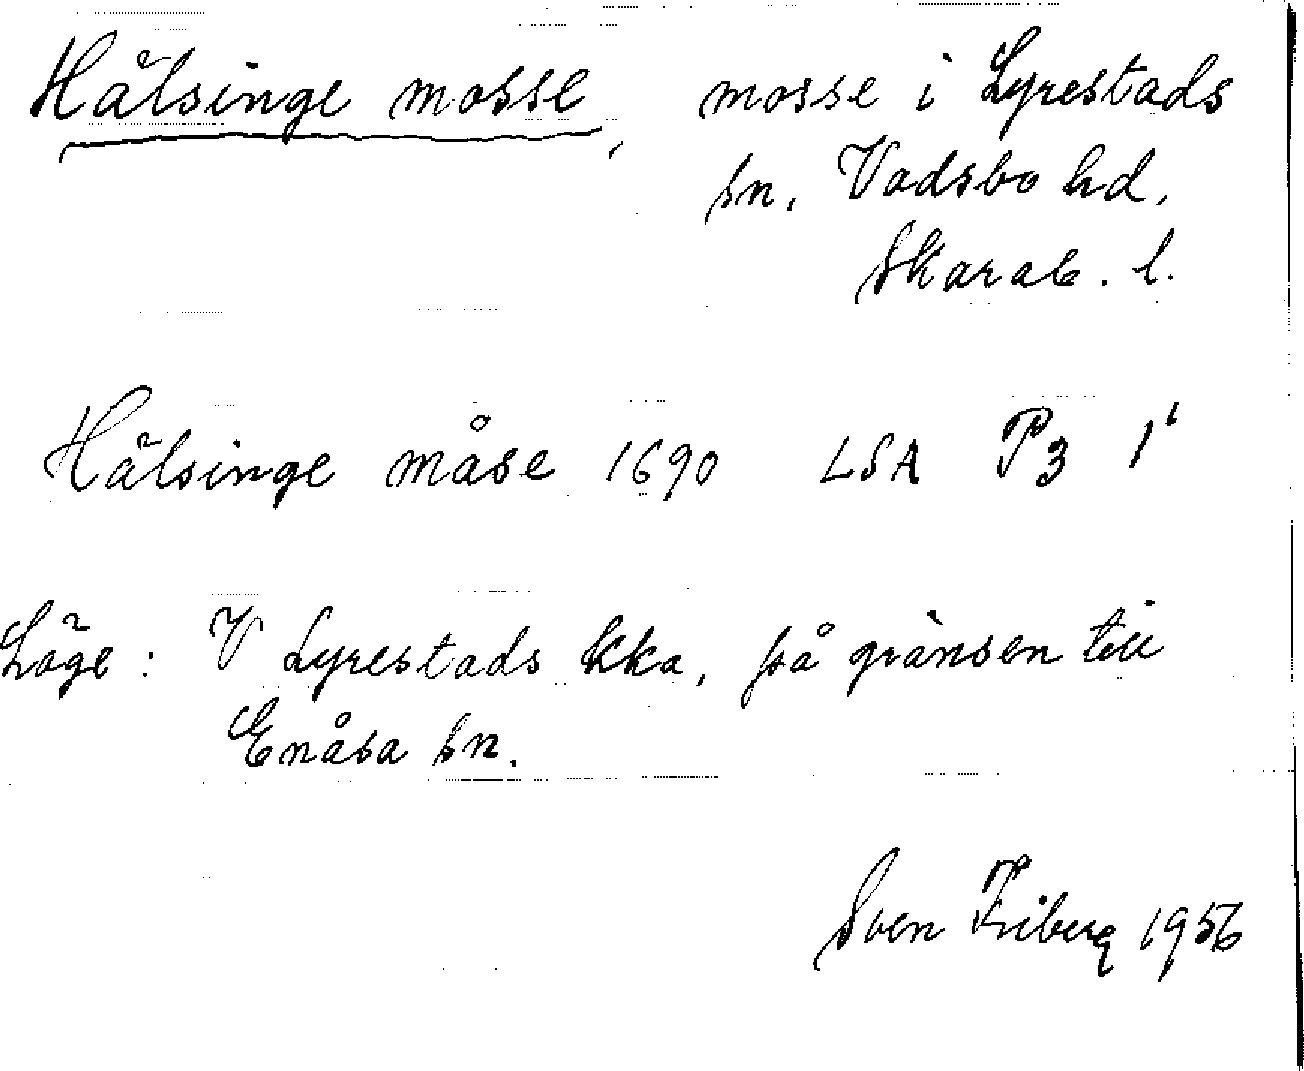 Hälsinge mosse, mosse i Lyrestads
sn, Vadsbo hd,
Skarab. l.
Hälsinge måse 1690 LSA P3 1¹
Läge: V Lyrestads kka, på gränsen till
Enåsa sn.
Sven Friberg 1956